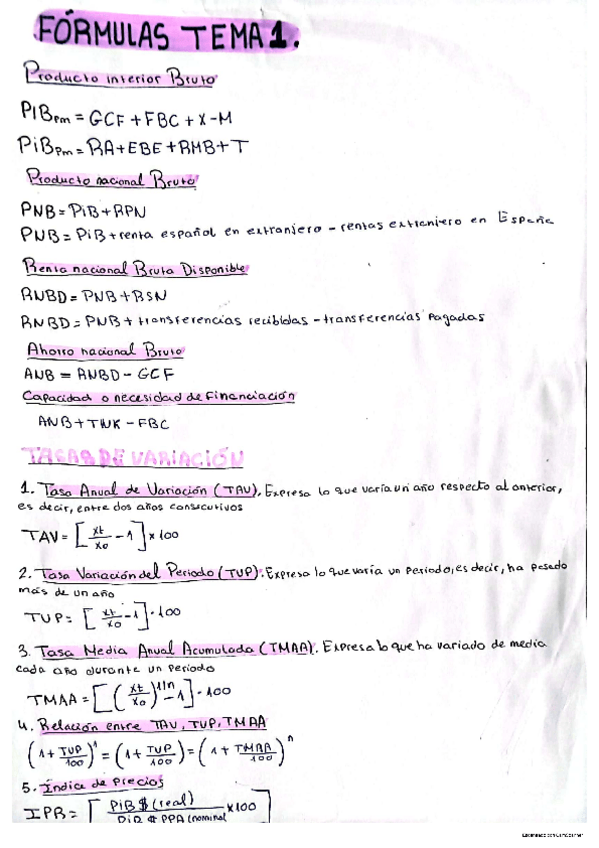 FÓRMULAS TEMA 1.
Producto interior Bruto
PIBpm = GCF + FBC + X - M
PiBpm = RA + EBE + RMB + T
Producto nacional Bruto
PNB = PiB + RPN
PNB = PiB + renta español en extranjero - rentas extranjero en España
Renta nacional Bruta Disponible
RNBD = PNB + RSN
RNBD = PNB + transferencias recibidas - transferencias pagadas
Ahorro nacional Bruto
ANB = RNBD - GCF
Capacidad o necesidad de Financiación
ANB + TNK - FBC
TASAS DE VARIACIÓN
1. Tasa Anual de Variación (TAV). Expresa lo que varía un año respecto al anterior,
es decir, entre dos años consecutivos
TAV = [xt/xo - 1] x 100
2. Tasa Variación del Periodo (TVP). Expresa lo que varía un periodo, es decir, ha pasado
más de un año
TVP = [xt/xo - 1] · 100
3. Tasa Media Anual Acumulada (TMAA). Expresa lo que ha variado de media
cada año durante un periodo
TMAA = [(xt/xo)^1/n - 1] · 100
4. Relación entre TAV, TVP, TMAA
(1 + TVP/100)^1 = (1 + TVP/100) = (1 + TMAA/100)^n
5. Índice de Precios
IPR = [PiB $ (real) / PiB $ PPA (nominal x 100]